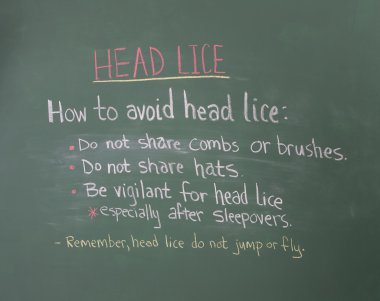 HEAD LICE
How to avoid head lice:
• Do not share combs or brushes.
• Do not share hats.
• Be vigilant for head lice
* especially after sleepovers.
- Remember, head lice do not jump or fly.